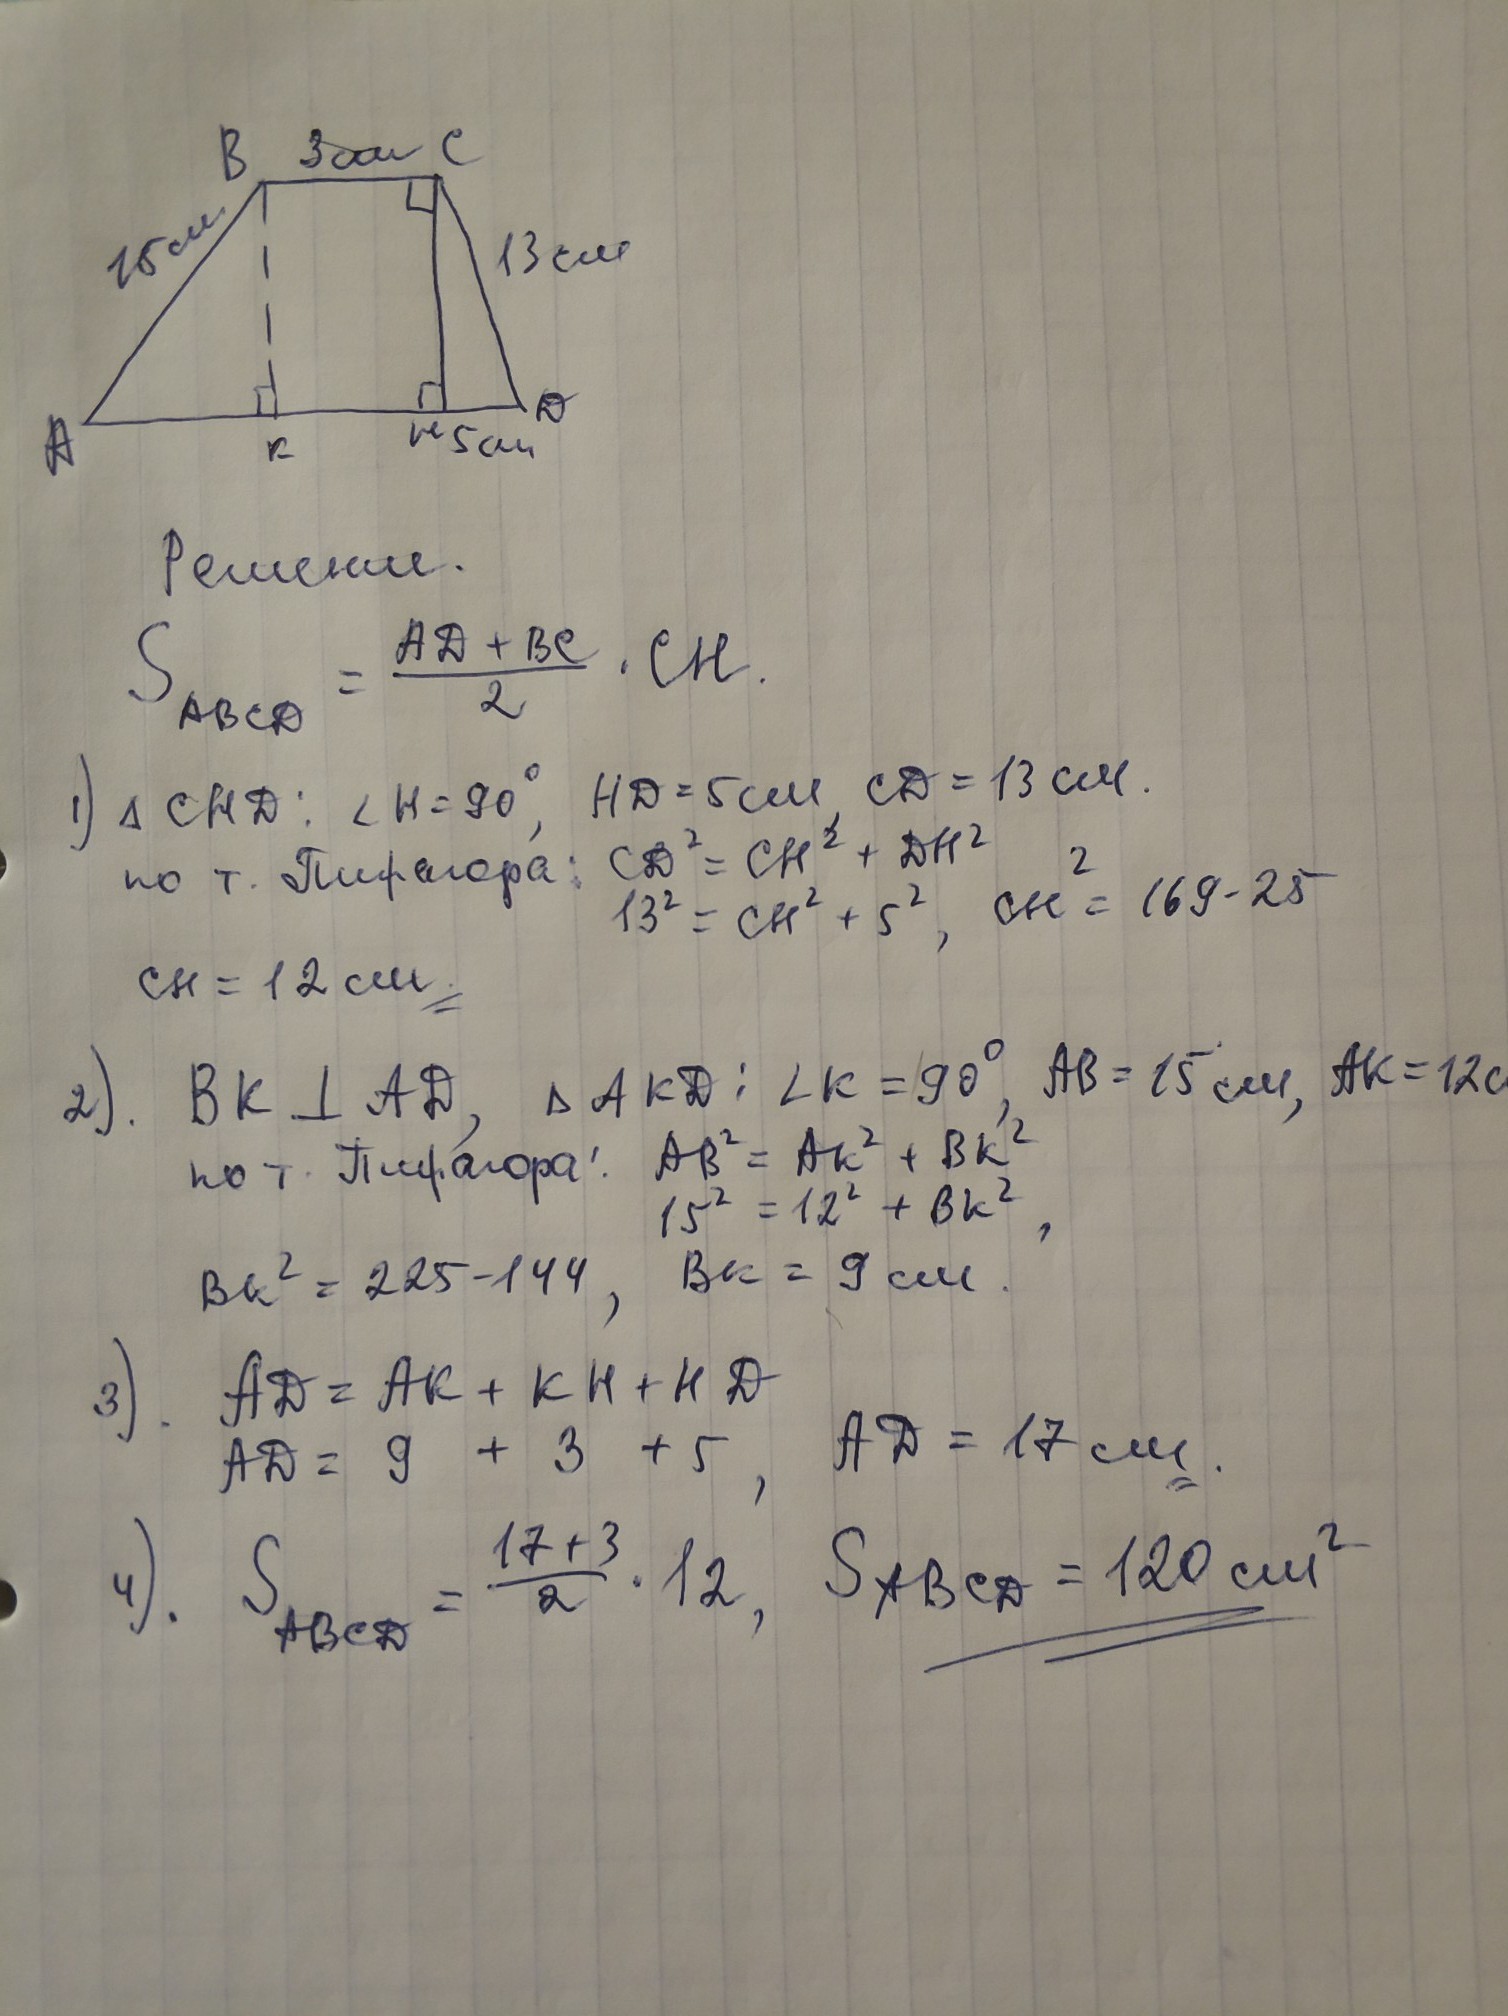 B 3см C
15см
13см
A K H 5см D
Решение.
S ABCD = (AD + BC)/2 · CH.
1) △ CHD: ∠H = 90°, HD = 5см, CD = 13 см.
по т. Пифагора: CD² = CH² + DH²
13² = CH² + 5², CH² = 169 - 25
CH = 12 см.
2). BK ⊥ AD, △ AKD: ∠K = 90°, AB = 15 см, AK = 12с
по т. Пифагора: AB² = AK² + BK²
15² = 12² + BK²,
BK² = 225 - 144, BK = 9 см.
3). AD = AK + KH + HD
AD = 9 + 3 + 5, AD = 17 см.
4). S ABCD = (17 + 3)/2 · 12, S ABCD = 120 см²